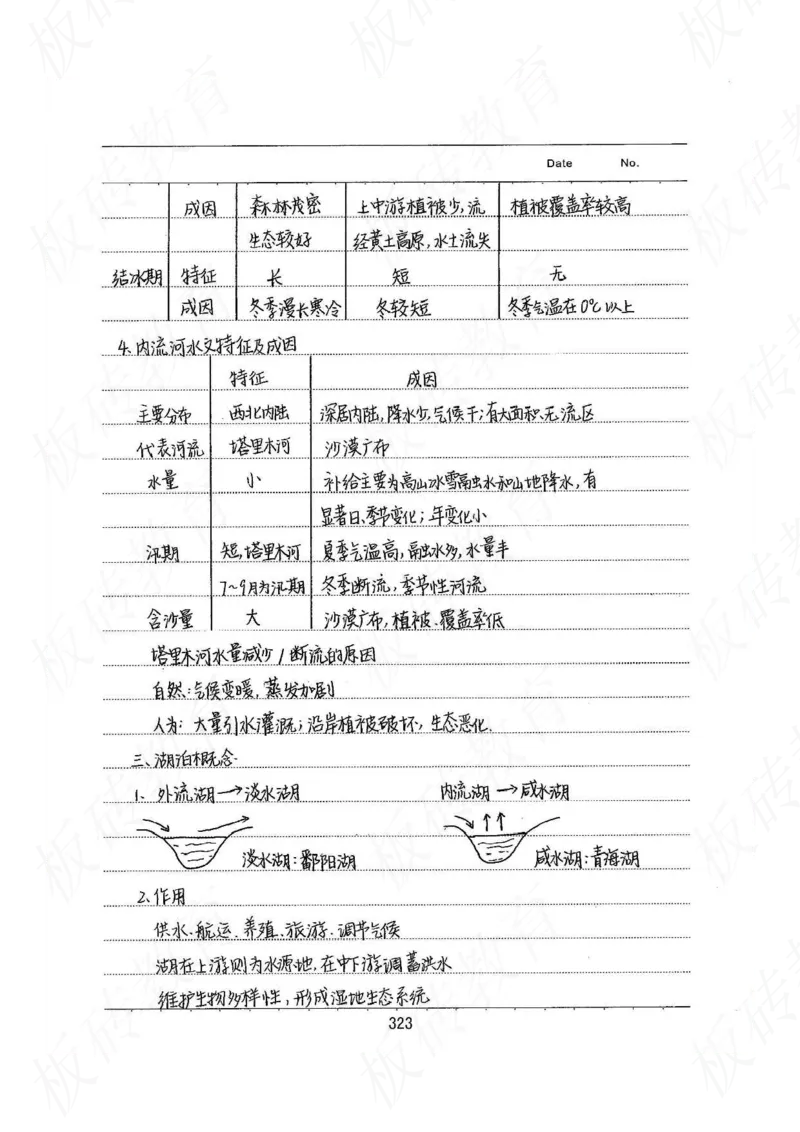 Date No.
成因 森林茂密 上中游植被少,流 植被覆盖率较高
生态较好 经黄土高原,水土流失
结冰期 特征 长 短 无
成因 冬季漫长寒冷 冬较短 冬季气温在0℃以上
4.内流河水文特征及成因
特征 成因
主要分布 西北内陆 深居内陆,降水少,气候干;有大面积无流区
代表河流 塔里木河 沙漠广布
水量 小 补给主要为高山冰雪融水和山地降水,有
显著日、季节变化;年变化小
汛期 短,塔里木河 夏季气温高,融水多,水量丰
7~9月为汛期 冬季断流,季节性河流
含沙量 大 沙漠广布,植被覆盖率低
塔里木河水量减少/断流的原因
自然:气候变暖,蒸发加剧
人为:大量引水灌溉;沿岸植被破坏,生态恶化.
三、湖泊概念.
1、外流湖→淡水湖 内流湖→咸水湖
淡水湖:鄱阳湖 咸水湖:青海湖
2、作用
供水、航运、养殖、旅游、调节气候
湖在上游则为水源地,在中下游调蓄洪水
维护生物多样性,形成湿地生态系统
323
板砖教育